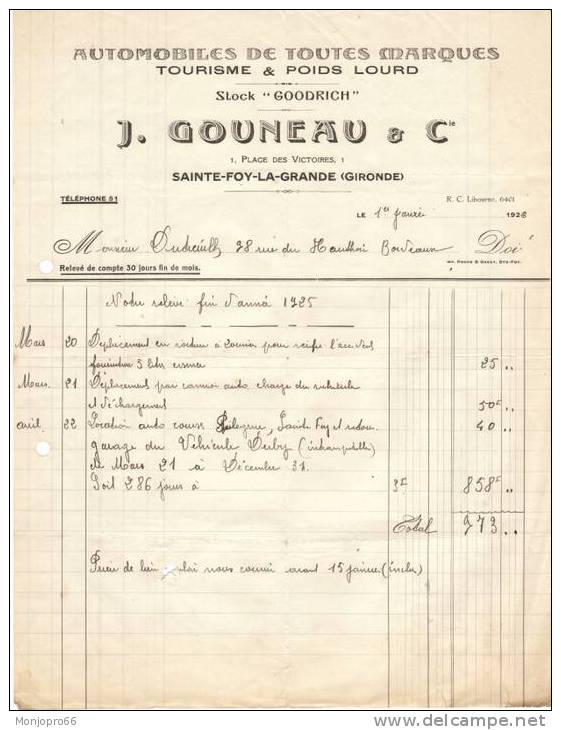 AUTOMOBILES DE TOUTES MARQUES
TOURISME & POIDS LOURD
Stock "GOODRICH"
J. GOUNEAU & Cie
1, PLACE DES VICTOIRES, 1
SAINTE-FOY-LA-GRANDE (GIRONDE)
TÉLÉPHONE 51
R. C. Libourne, 6401
LE 1er 1926
Monsieur 28 rue du Bordeaux Doit
Relevé de compte 30 jours fin de mois.
Notre relevé fin d'année 1925
Mars 20 Déplacement en pour
5 litres essence 25 "
Mars 21 Déplacement par camion auto charge du véhicule
et déchargement 50F "
avril 22 Location auto course Sainte Foy et retour 40 "
garage du Véhicule
de Mars 21 à Décembre 31.
Soit 286 jours à 3F 858F "
Total 973 "
Prière de bien nous avant 15 janvier (inclus)
Monjopro66
www.delcampe.net